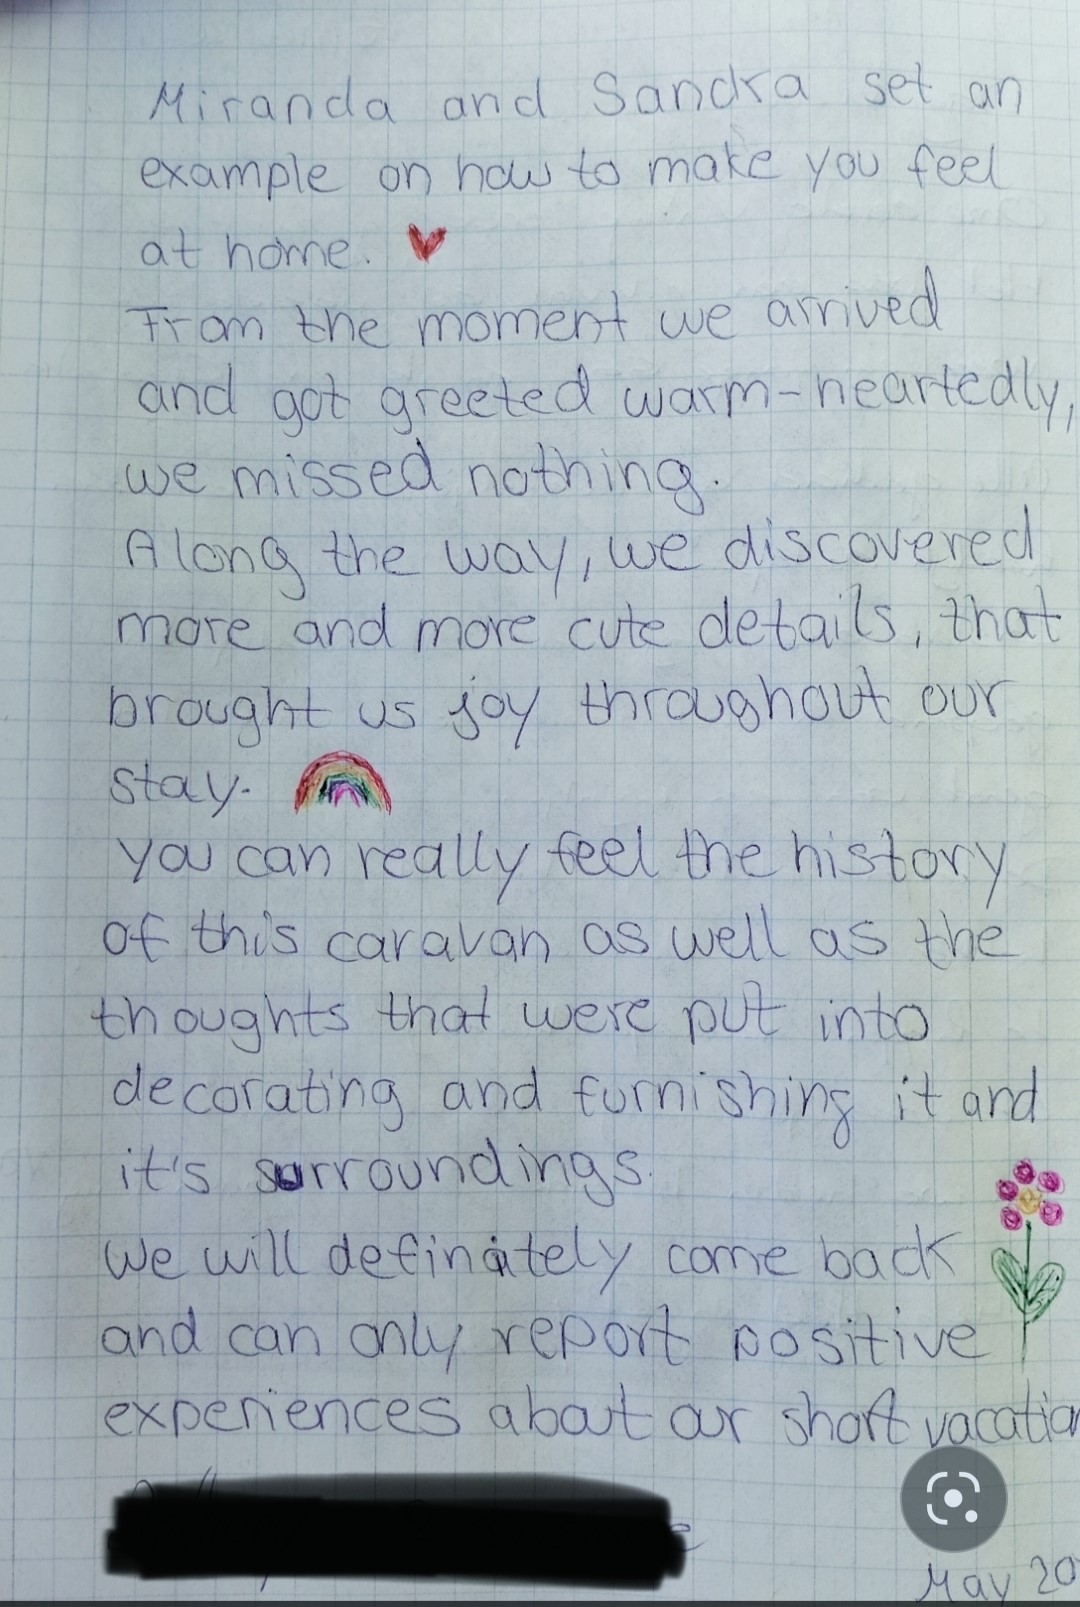 Miranda and Sandra set an
example on how to make you feel
at home.
From the moment we arrived
and got greeted warm-heartedly,
we missed nothing.
Along the way, we discovered
more and more cute details, that
brought us joy throughout our
stay.
You can really feel the history
of this caravan as well as the
thoughts that were put into
decorating and furnishing it and
it's surroundings.
We will definitely come back
and can only report positive
experiences about our short vacation
May 20